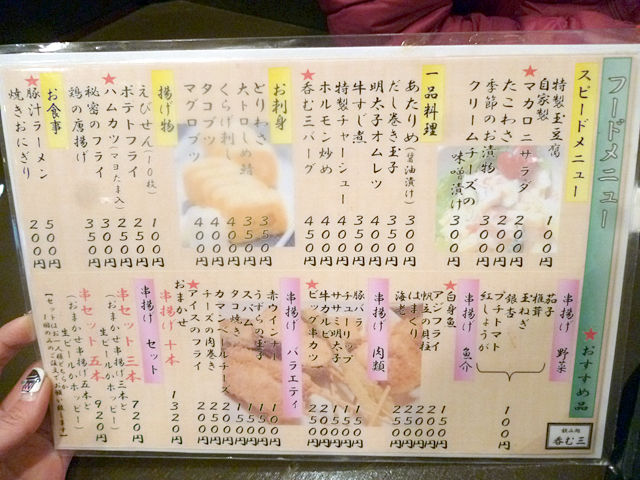 フードメニュー
★おすすめ品
スピードメニュー
特製玉豆腐 100円
自家製
★マカロニサラダ 200円
たこわさ 200円
季節のお漬物 300円
クリームチーズの
味噌漬け 300円
一品料理
あたりめ(醤油漬け) 300円
だし巻き玉子 350円
明太子オムレツ 400円
牛すじ煮 350円
特製チャーシュー 400円
ホルモン炒め 400円
★呑む三バーグ 450円
お刺身
どりわさ 350円
大トロしめ鯖 350円
くらげ刺し 400円
タコブツ 400円
マグロブツ 400円
揚げ物
えびせん(10枚) 100円
ポテトフライ 250円
★ハムカツ(マヨたま入) 250円
秘密のフライ 300円
鶏の唐揚げ 350円
お食事
★豚汁ラーメン 500円
焼きおにぎり 200円
串揚げ 野菜
茄子
椎茸
玉ねぎ
銀杏
プチトマト
紅しょうが
100円
串揚げ 魚介
★白身魚 100円
アジフライ 150円
帆立の貝柱 200円
はまぐり
海老
串揚げ 肉類
豚バラ
チューリップ
ササミ明太子
牛カルビ
★ビッグ串カツ
串揚げ バラエティ
赤ウインナー
うずらの玉子
スパム
タコ焼き
カマンベールチーズ
チーズの肉巻き
★アイスのフライ
おまかせ
串揚げ十本 1320円
串揚げ セット
串セット三本 720円
(おまかせ串揚げ三本と
生ビールかホッピー)
串セット五本 920円
(おまかせ串揚げ五本と
生ビールかホッピー)
呑む三